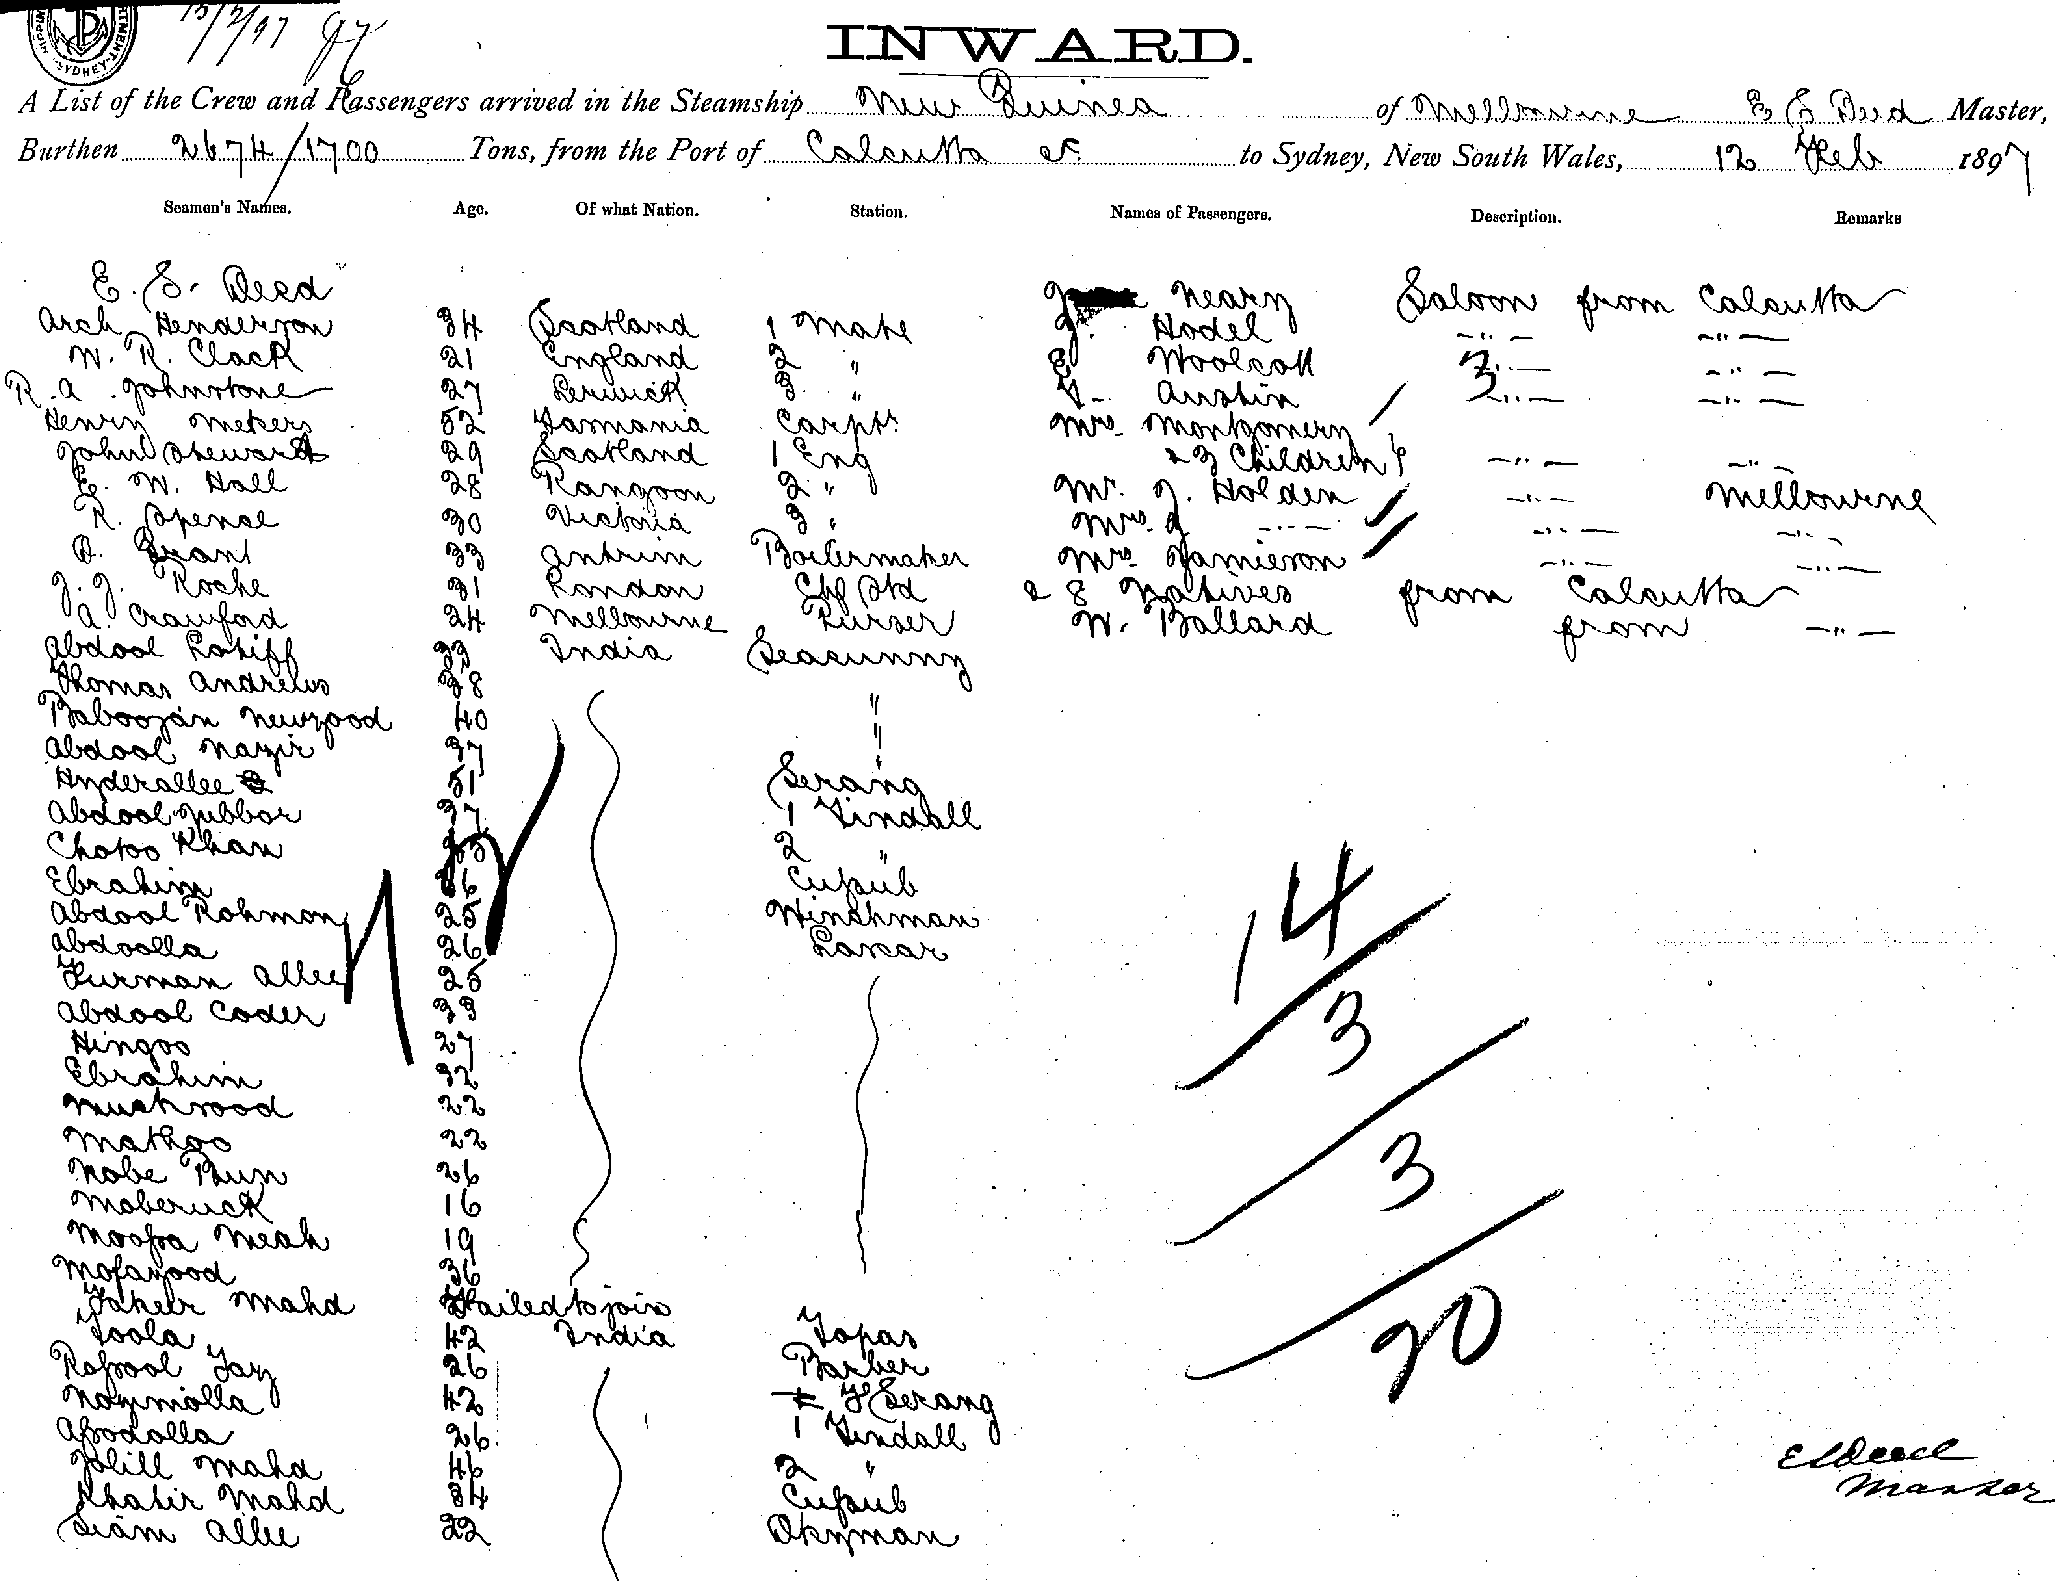 15/2/97
INWARD.
A List of the Crew and Passengers arrived in the Steamship New Guinea of Melbourne E S Deed Master,
Burthen 2674/1700 Tons, from the Port of Calcutta &c to Sydney, New South Wales, 12 Feb 1897
Seamen's Names. Age. Of what Nation. Station. Names of Passengers. Description. Remarks
E. S. Deed
Arch Henderson 34 Scotland 1 Mate
W. R. Clack 21 England 2 "
R. A. Johnstone 27 Berwick 3 "
Henry Mekers 52 Tasmania Carptr
John Stewart 29 Scotland 1 Eng
E. W. Hall 28 Rangoon 2 "
R. Spence 30 Victoria 3 "
Grant 33 Antrim Boilermaker
J. J. Roche 31 London Chf Std
A. Crawford 24 Melbourne Purser
Abdool Latiff 33 India Seacunny
Thomas Andrews 38 "
Baboojan Newrood 40 "
Abdool Nazir 37 "
Hyderallee 51 Serang
Abdool Jubbar 37 1 Tindall
Chotoo Khan 2 "
Ebrahim Cussub
Abdool Rohmon 25 Winchman
Abdoolla 26 Lascar
Furman Allee 25
Abdool Coder 33
Hingoo 27
Ebrahim 32
Mushrood 22
Mathoo 22
Nobe Bun 26
Moberuck 16
Moossa Meah 19
Mofazood 36
Fakeer Mahd Failed to join
Foola 42 India Topas
Rossool Jay 26 Barber
Nozmolla 42 F Serang
Assodolla 26 1 Tindall
Jolill Mahd 46 2 "
Khatir Mahd 34 Cussub
Siam Allee 22 Oilyman
J Neary Saloon from Calcutta
J. Hodel -"- -"-
E Woolcott -"- -"-
F. Austin -"- -"-
Mrs Montgomery
& 3 Children -"- -"-
Mr. J. Holden -"- Melbourne
Mrs J -"- -"- -"-
Mrs Jamieson -"- -"-
& 8 Natives from Calcutta
W. Ballard from -"-
14
3
3
20
E S Deed
Master